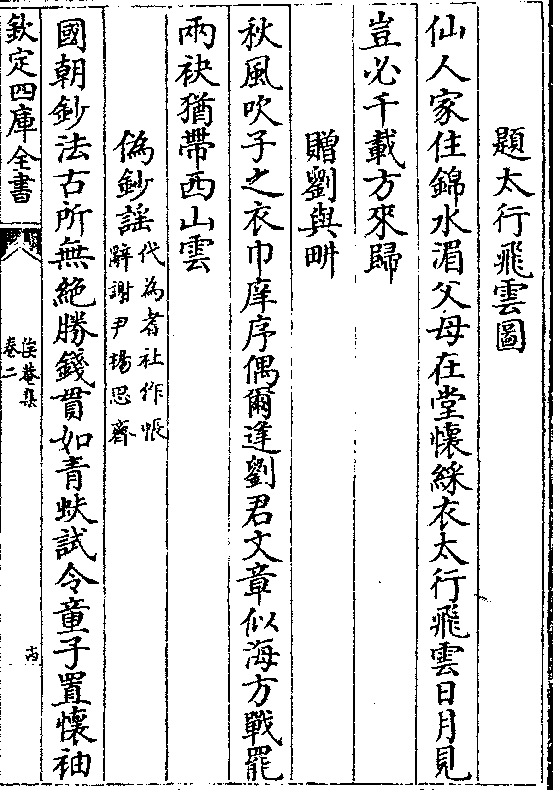 題太行飛雲圖
仙人家住錦水湄父母在堂懷綵衣太行飛雲日月見
豈必千載方來歸
贈劉與畊
秋風吹子之衣巾庠序偶爾逢劉君文章似海方戰罷
兩袂猶帶西山雲
偽鈔謡
代為者社作悵
辭謝尹楊思齋
國朝鈔法古所無絶勝錢貫如青蚨試令童子置懷袖
欽定四庫全書
俟菴集
卷二